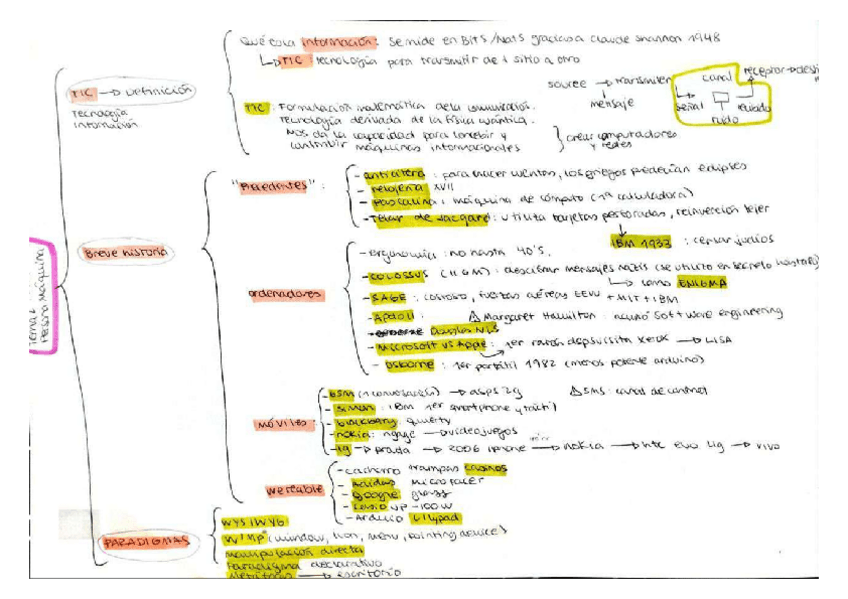 Tema 1 Persona máquina
TIC → Definición
Tecnología
Información
información: se mide en Bits/Nats gracias a Claude Shannon 1948
↳ TIC tecnología para transmitir de 1 sitio a otro
source → transmiter canal receptor →
mensaje señal ruido
TIC: Formulación matemática de la comunicación.
Tecnología derivada de la física cuántica.
Nos da la capacidad para concebir y
construir máquinas informacionales } crear computadores y redes
Breve historia
"Precedentes":
- anticitera: para hacer cuentas, los griegos predecían eclipses
- relojería XVII
- Pascalina: máquina de cómputo (1ª calculadora)
- Telar de Jacquard: utiliza tarjetas perforadas, reinversión tejer
↓
IBM 1933: censar judíos
ordenadores
- ergonomics: no hasta 40's.
- COLOSSUS (II GM): descifrar mensajes nazis (se utilizó en secreto hasta
↳ como ENIGMA
- SAGE: costoso, fuerzas aéreas EEUU + MIT + IBM
- Apollo: ⚠ Margaret Hamilton: acuñó software engineering
- Douglas NLS
- Microsoft vs Apple: 1er ratón visita Xerox → LISA
- Osborne: 1er portátil 1982 (menos potente arduino)
móviles
- GSM (1 conversación) → 2g ⚠ SMS: canal de control
- Simon: IBM 1er smartphone y táctil
- blackberry: qwerty
- nokia: ngage → videojuegos
- lg → prada → 2006 iphone → nokia → htc evo 4g → vivo
wereable
- cacharro trampas casinos
- Adidas micropacer
- Google glass
- Casio VP-100W
- Arduino Lilypad
PARADIGMAS
WYSIWYG
WIMP (window, icon, menu, pointing device)
manipulación directa
Paradigma declarativo
Metáforas → escritorio